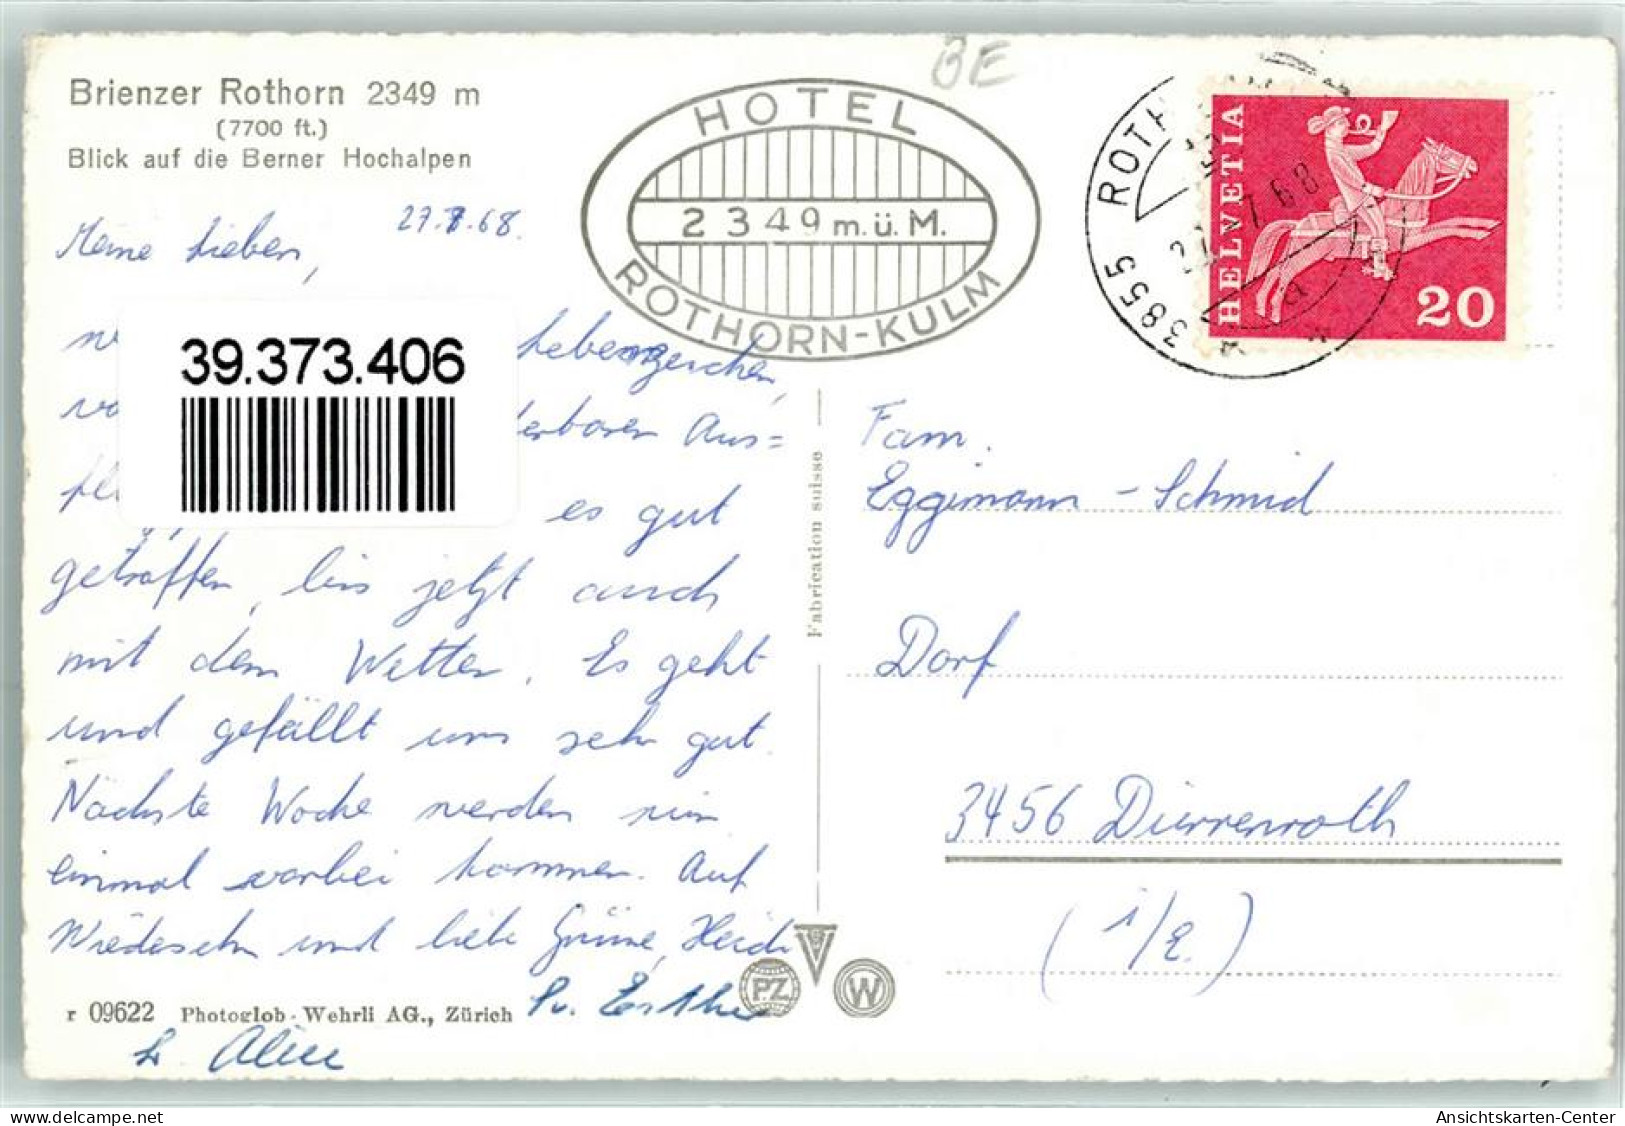 Brienzer Rothorn 2349 m
(7700 ft.)
Blick auf die Berner Hochalpen
BE
HOTEL
2349 m.ü.M.
ROTHORN-KULM
3855 ROTH
7.68
a
HELVETIA
20
27.7.68.
Meine Lieben,
Lebenszeichen,
39.373.406
derbaren Aus=
es gut
getroffen, bis jetzt auch
mit dem Wetter. Es geht
und gefällt uns sehr gut.
Nächste Woche werden wir
einmal vorbei kommen. Auf
Wiedersehn und liebe Grüsse, Heidi
Fabrication suisse
Fam.
Eggimann-Schmid
Dorf
3456 Dürrenroth
(i/E.)
PZ
W
r 09622 Photoglob-Wehrli AG., Zürich
Esther